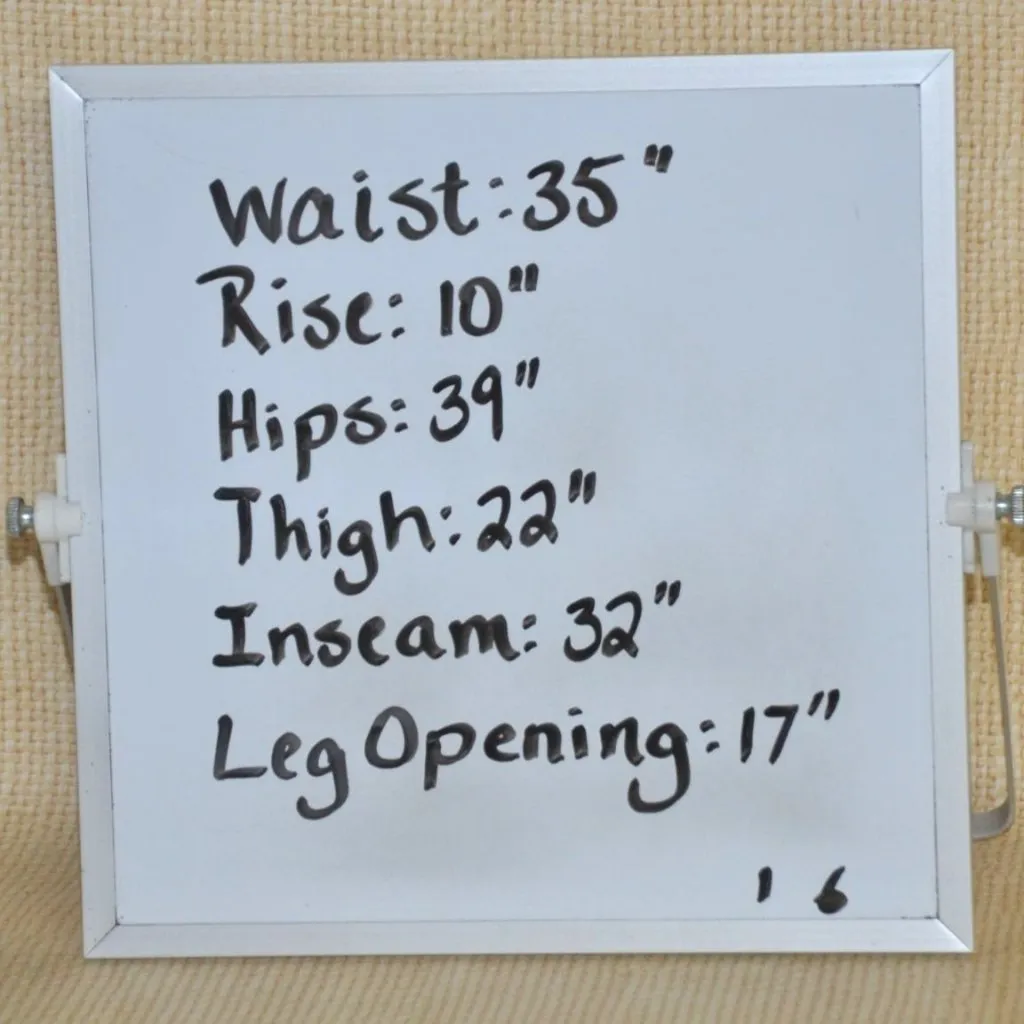 Waist: 35"
Rise: 10"
Hips: 39"
Thigh: 22"
Inseam: 32"
Leg Opening: 17"
1 6